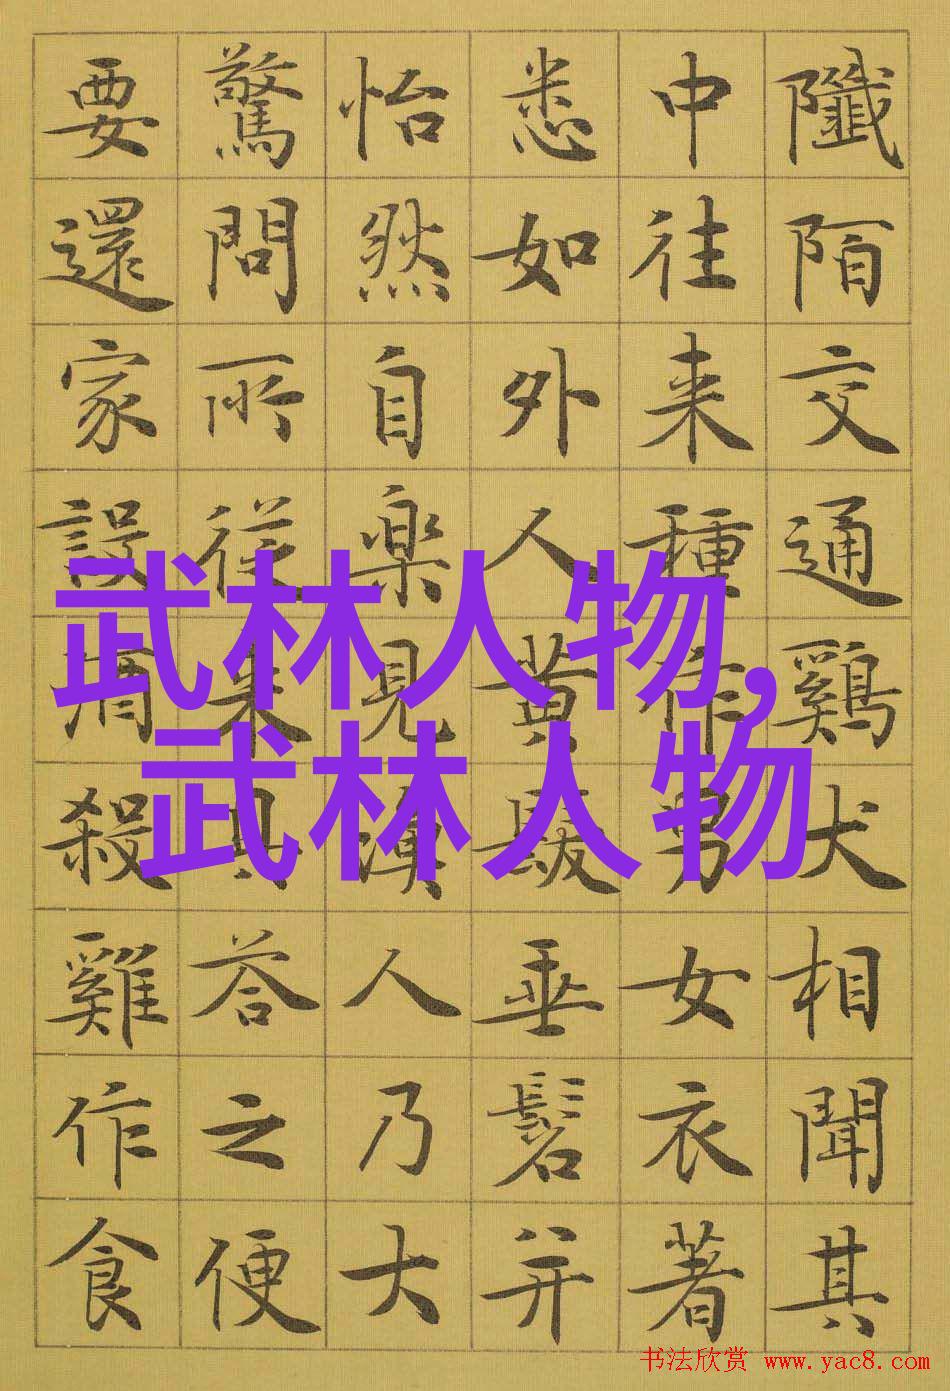 陌交通鷄犬相聞其
中往来種作男女衣著
悉如外人黄髮垂髫并
怡然自楽見漁人乃大
驚問所從来具荅之便
要還家設酒殺雞作食
武林人物,
武林人物
书法欣赏 www.yac8.com